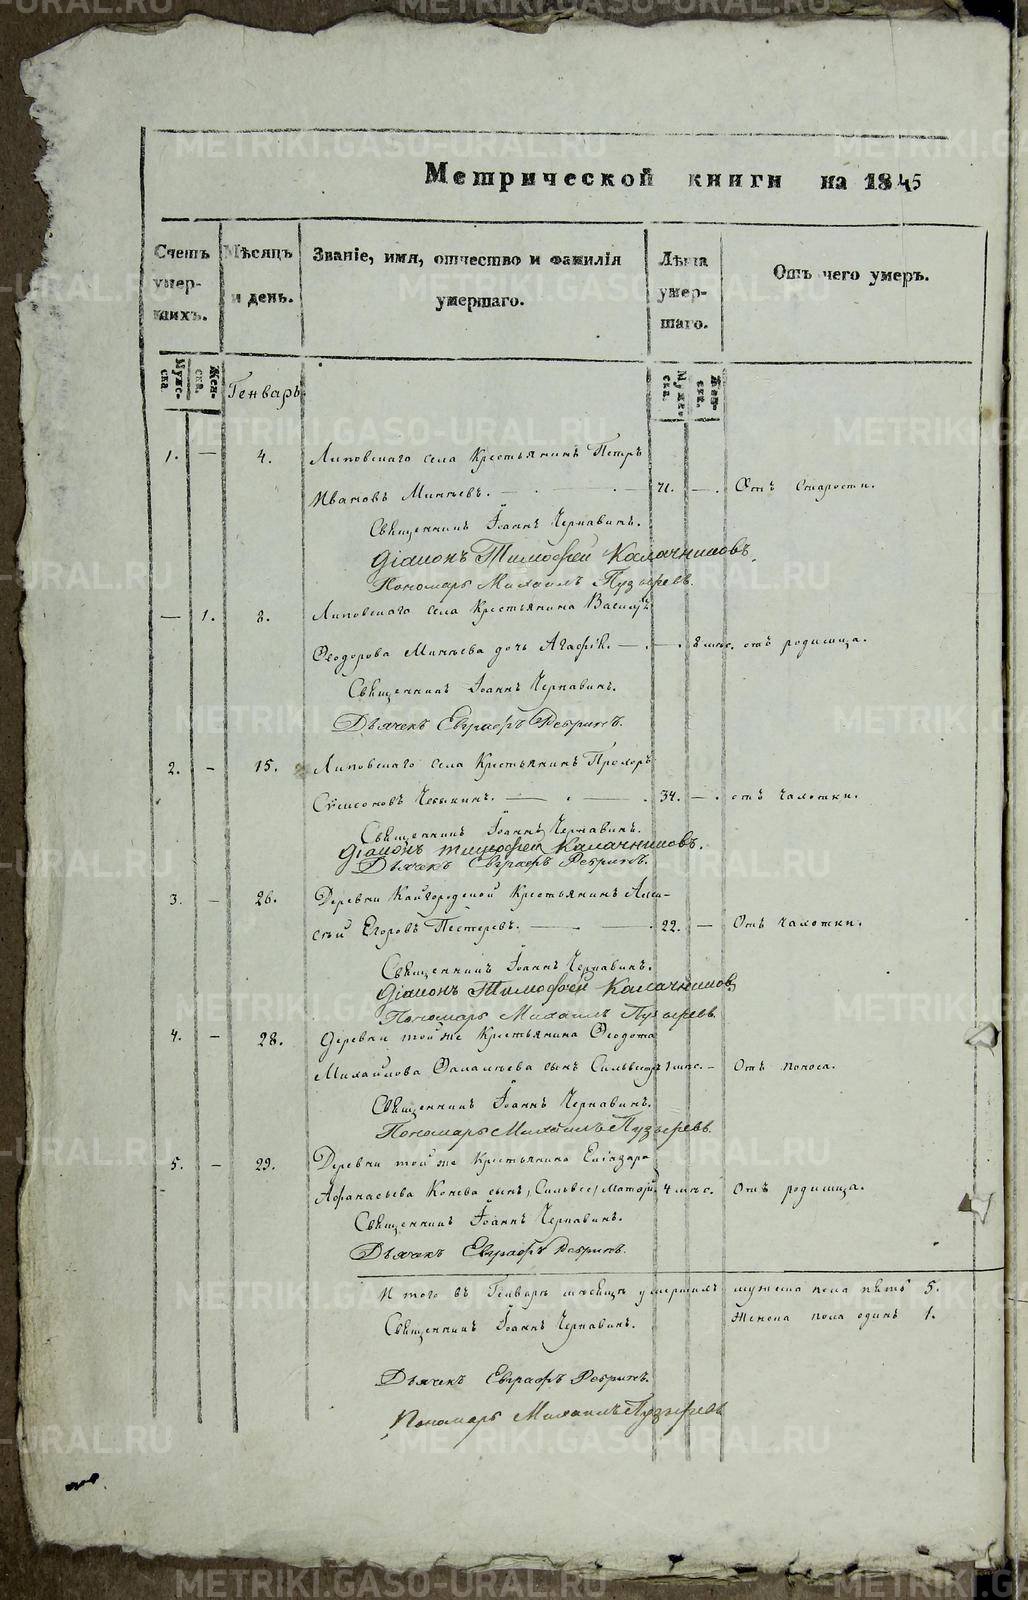 Метрической книги на 1845
Счетъ умер-шихъ.
Мѣсяцъ и день.
Званіе, имя, отчество и фамилія умершаго.
Лѣта умер-шаго.
Отъ чего умеръ.
Мужес-ка
Жен-ска.
Генварь
Мужес-ка.
Жен-ска.
1. — 4. Липовскаго села Крестьянинъ Петръ
Ивановъ Минѣевъ. 71. — Отъ Старости.
Священникъ Іоаннъ Чернавинъ.
Діаконъ Тимофей Калачниковъ.
Пономарь Михаилъ Пузыревъ.
— 1. 8. Липовскаго села Крестьянина Василія
Ѳеодорова Минѣева дочь Агафія. — 8 мѣс. отъ родимца.
Священникъ Іоаннъ Чернавинъ.
Дьячекъ Евграфъ Ребринъ.
2. — 15. Липовскаго села Крестьянинъ Прохоръ
Сѵмеоновъ Чебыкинъ. 34. — отъ чахотки.
Священникъ Іоаннъ Чернавинъ.
Діаконъ Тимофей Калачниковъ.
Дьячекъ Евграфъ Ребринъ.
3. — 26. Деревни Кайгородской Крестьянинъ Алек-
сѣй Егоровъ Пестеревъ. 22. — Отъ чахотки.
Священникъ Іоаннъ Чернавинъ.
Діаконъ Тимофей Калачниковъ
Пономарь Михаилъ Пузыревъ.
4. — 28. Деревни той же Крестьянина Ѳеодота
Михайлова сынъ Сильвестръ 1 мѣс. — Отъ поноса.
Священникъ Іоаннъ Чернавинъ.
Пономарь Михаилъ Пузыревъ.
5. — 29. Деревни той же Крестьянина Елиазара
Афанасьева Конева сынъ 4 мѣс. Отъ родимца.
Священникъ Іоаннъ Чернавинъ.
Дьячекъ Евграфъ Ребринъ.
Итого въ Генварѣ мѣсяцѣ умершихъ мужеска пола пять 5.
Женска пола одинъ 1.
Священникъ Іоаннъ Чернавинъ.
Дьячекъ Евграфъ Ребринъ.
Пономарь Михаилъ Пузыревъ